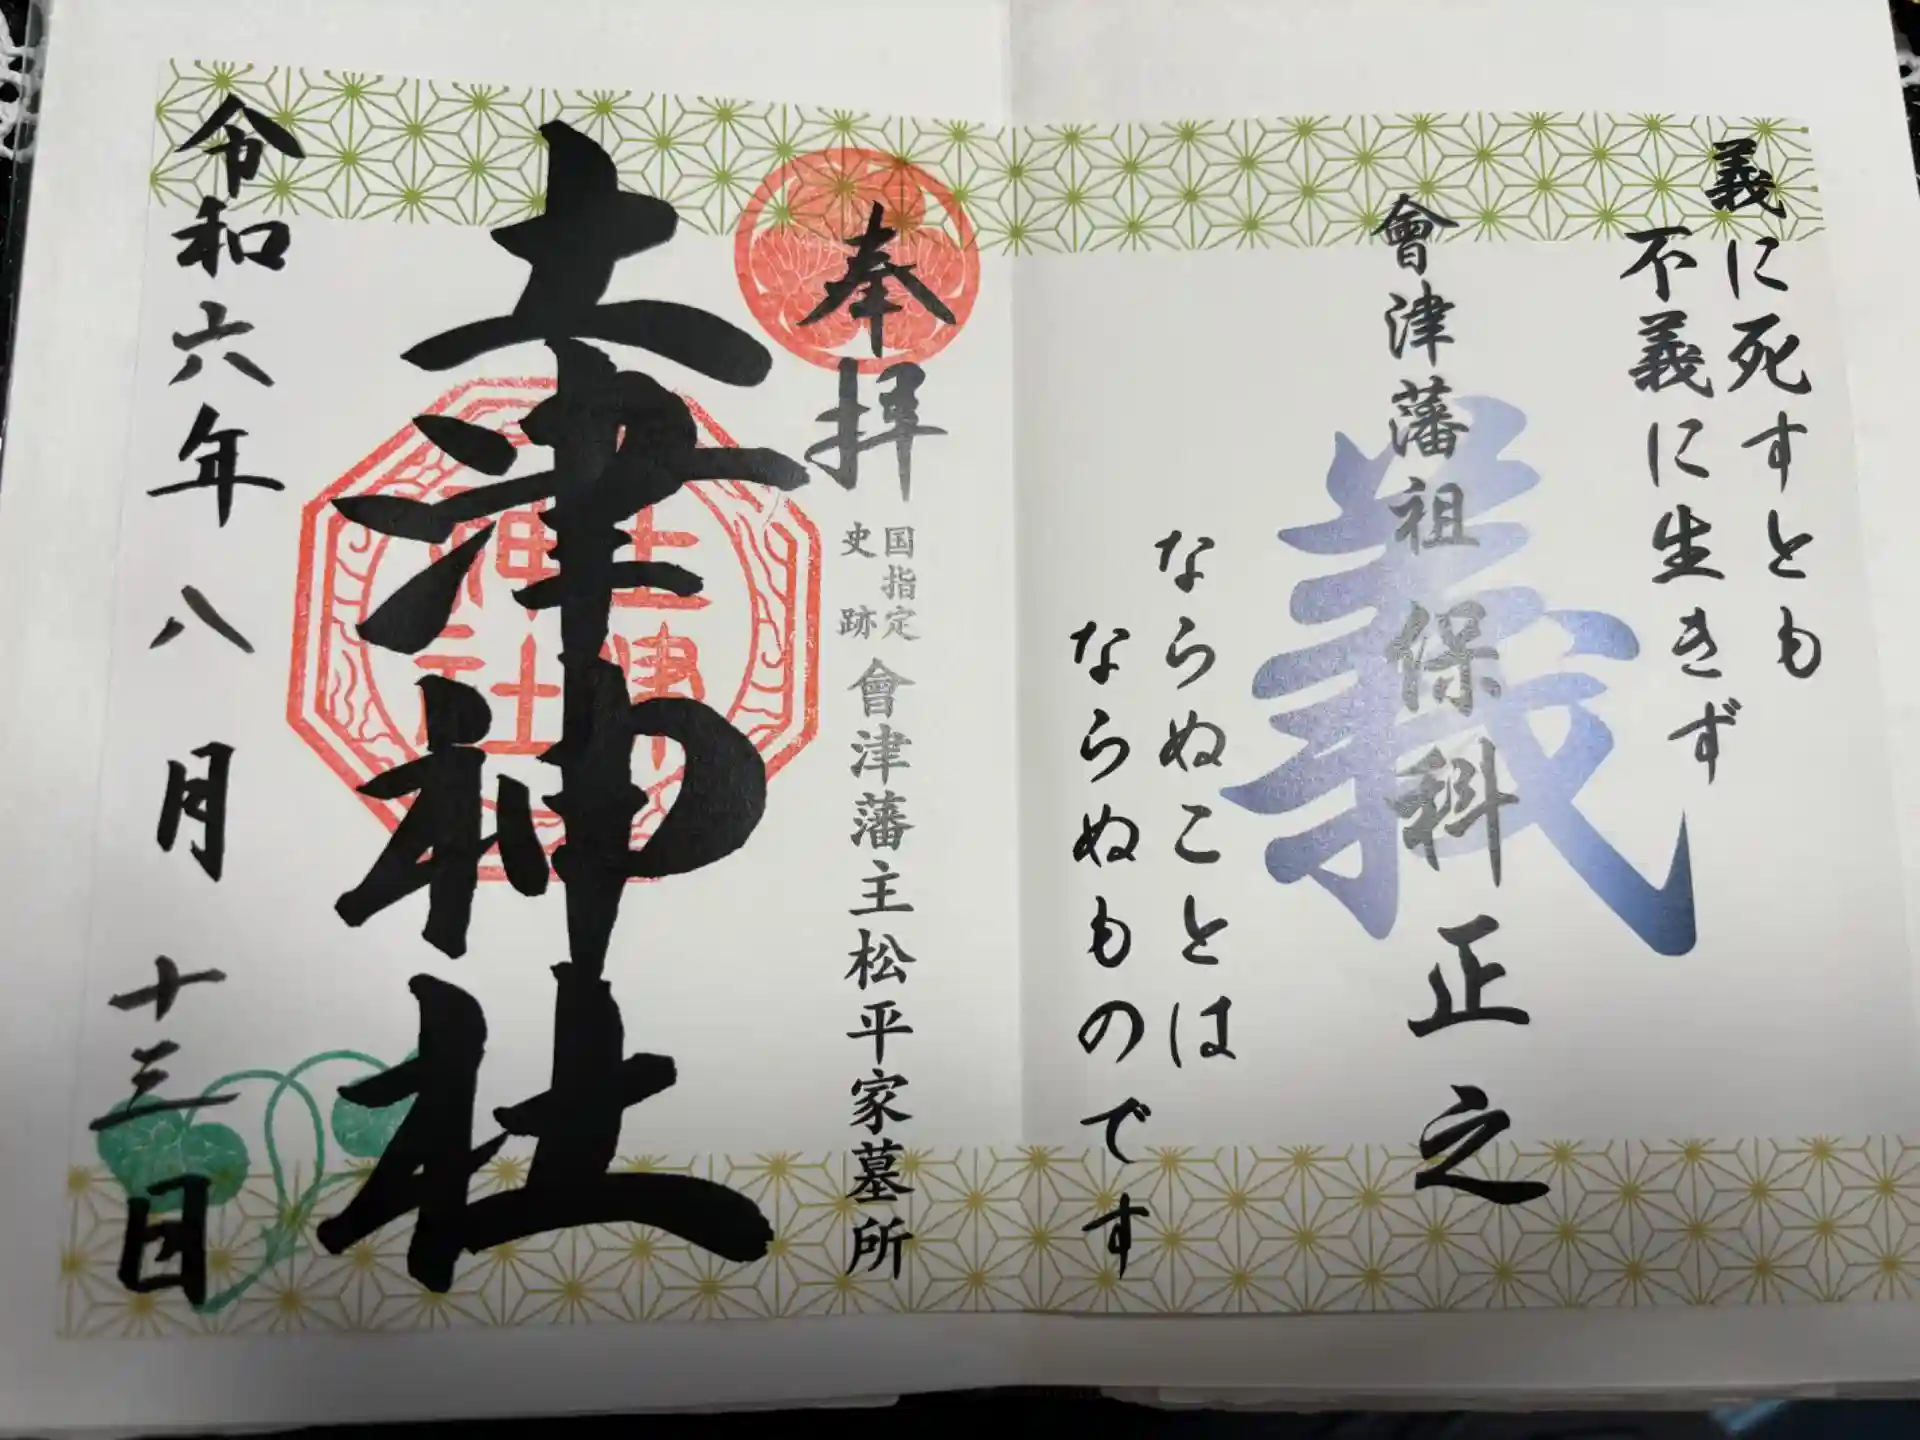 義に死すとも
不義に生きず
會津藩祖 保科正之
義
ならぬことは
ならぬものです
奉拝
国指定
史跡
會津藩主松平家墓所
土津神社
土津
神社
令和六年八月十三日